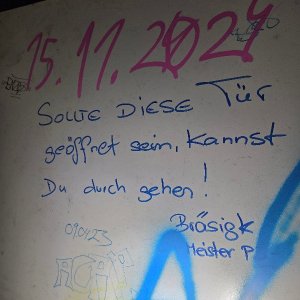 15.11.2024
SOLLTE DIESE Tür
geöffnet sein, kannst
Du durch gehen!
Bräsigk
Meister P
09.04.23